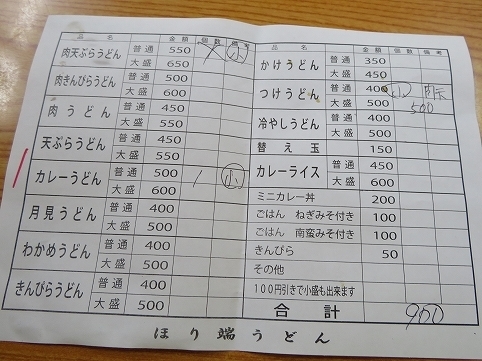 品名 金額 個数 備考
肉天ぷらうどん 普通 550 小
大盛 650
肉きんぴらうどん 普通 500
大盛 600
肉うどん 普通 450
大盛 550
天ぷらうどん 普通 450
大盛 550
カレーうどん 普通 500 / 小
大盛 600
月見うどん 普通 400
大盛 500
わかめうどん 普通 400
大盛 500
きんぴらうどん 普通 400
大盛 500
品名 金額 個数 備考
かけうどん 普通 350
大盛 450
つけうどん 普通 400 小
大盛 500 500
冷やしうどん 普通 400
大盛 500
替え玉 150
カレーライス 普通 450
大盛 600
ミニカレー丼 200
ごはん ねぎみそ付き 100
ごはん 南蛮みそ付き 100
きんぴら 50
その他
100円引きで小盛も出来ます
合計 900
ほり端うどん